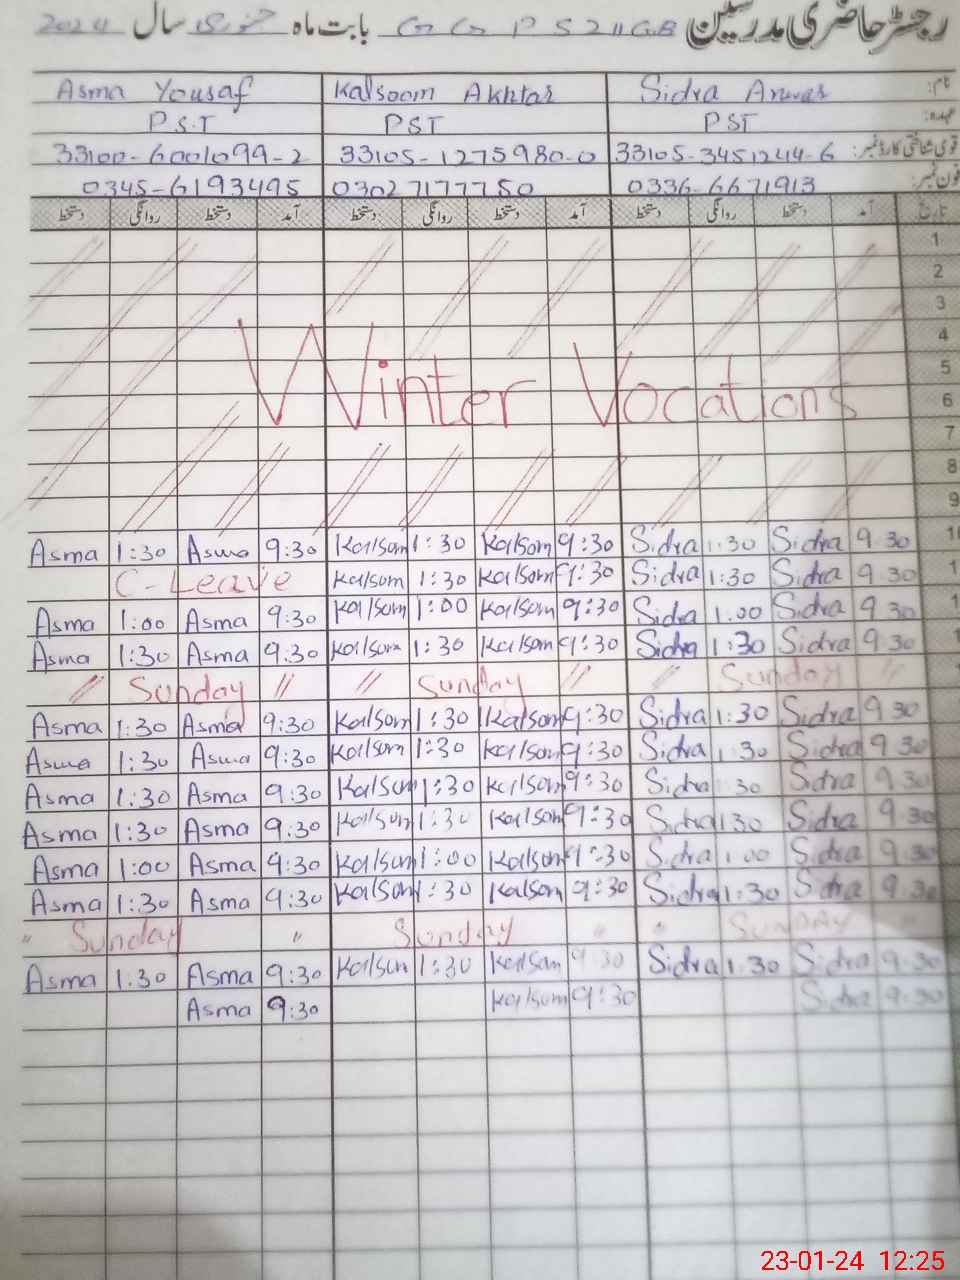 رجسٹر حاضری مدرسین G G P S 211 GB بابت ماہ جنوری سال 2024
نام: Sidra Anwar Kalsoom Akhtar Asma Yousaf
عہدہ: PST PST P.S.T
قومی شناختی کارڈ نمبر: 33105-3451244-6 33105-1275980-0 33100-6001099-2
فون نمبر: 0336-6671913 03027177750 0345-6193495
تاریخ آمد دستخط روانگی دستخط آمد دستخط روانگی دستخط آمد دستخط روانگی دستخط
1
2
3
4
5
Winter Vocations
6
7
8
9
Asma 1:30 Asma 9:30 Kalsom 1:30 Kalsom 9:30 Sidra 1:30 Sidra 9:30 10
C-Leave Kalsom 1:30 Kalsom 9:30 Sidra 1:30 Sidra 9:30 1
Asma 1:00 Asma 9:30 Kalsom 1:00 Kalsom 9:30 Sidra 1:00 Sidra 9:30 1
Asma 1:30 Asma 9:30 Kalsom 1:30 Kalsom 9:30 Sidra 1:30 Sidra 9:30 1
// Sunday // // Sunday // // Sunday // 1
Asma 1:30 Asma 9:30 Kalsom 1:30 Kalsom 9:30 Sidra 1:30 Sidra 9:30
Asma 1:30 Asma 9:30 Kalsom 1:30 Kalsom 9:30 Sidra 1:30 Sidra 9:30
Asma 1:30 Asma 9:30 Kalsom 1:30 Kalsom 9:30 Sidra 1:30 Sidra 9:30
Asma 1:30 Asma 9:30 Kalsom 1:30 Kalsom 9:30 Sidra 1:30 Sidra 9:30
Asma 1:00 Asma 9:30 Kalsom 1:00 Kalsom 9:30 Sidra 1:00 Sidra 9:30
Asma 1:30 Asma 9:30 Kalsom 1:30 Kalsom 9:30 Sidra 1:30 Sidra 9:30
" Sunday " Sunday " " SUNDAY "
Asma 1:30 Asma 9:30 Kalsom 1:30 Kalsom 9:30 Sidra 1:30 Sidra 9:30
Asma 9:30 Kalsom 9:30 Sidra 9:30
23-01-24 12:25